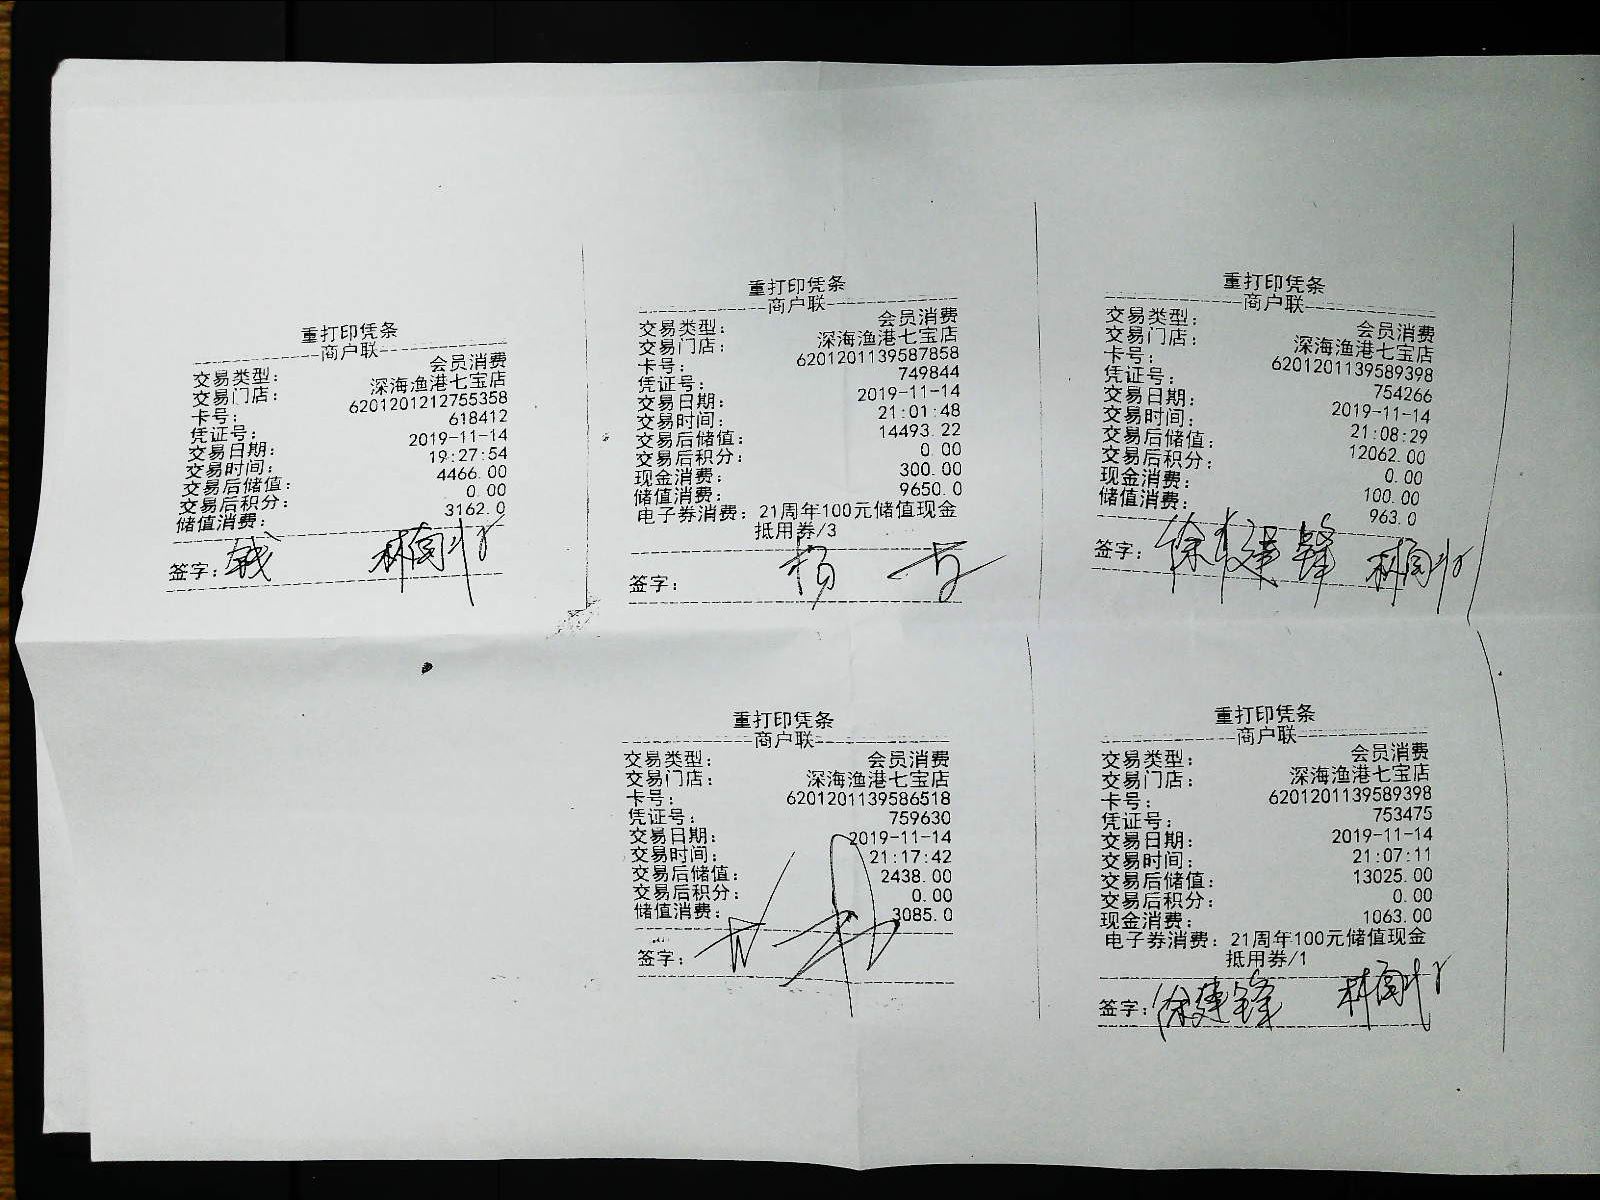 重打印凭条
商户联
交易类型： 会员消费
交易门店： 深海渔港七宝店
卡号： 6201201212755358
凭证号： 618412
交易日期： 2019-11-14
交易时间： 19:27:54
交易后储值： 4466.00
交易后积分： 0.00
储值消费： 3162.0
签字： 钱
重打印凭条
商户联
交易类型： 会员消费
交易门店： 深海渔港七宝店
卡号： 6201201139587858
凭证号： 749844
交易日期： 2019-11-14
交易时间： 21:01:48
交易后储值： 14493.22
交易后积分： 0.00
现金消费： 300.00
储值消费： 9650.0
电子券消费：21周年100元储值现金
抵用券/3
签字： 杨
重打印凭条
商户联
交易类型： 会员消费
交易门店： 深海渔港七宝店
卡号： 6201201139589398
凭证号： 754266
交易日期： 2019-11-14
交易时间： 21:08:29
交易后储值： 12062.00
交易后积分： 0.00
现金消费： 100.00
储值消费： 963.0
签字： 徐建锋
重打印凭条
商户联
交易类型： 会员消费
交易门店： 深海渔港七宝店
卡号： 6201201139586518
凭证号： 759630
交易日期： 2019-11-14
交易时间： 21:17:42
交易后储值： 2438.00
交易后积分： 0.00
储值消费： 3085.0
签字：
重打印凭条
商户联
交易类型： 会员消费
交易门店： 深海渔港七宝店
卡号： 6201201139589398
凭证号： 753475
交易日期： 2019-11-14
交易时间： 21:07:11
交易后储值： 13025.00
交易后积分： 0.00
现金消费： 1063.00
电子券消费：21周年100元储值现金
抵用券/1
签字： 徐建锋